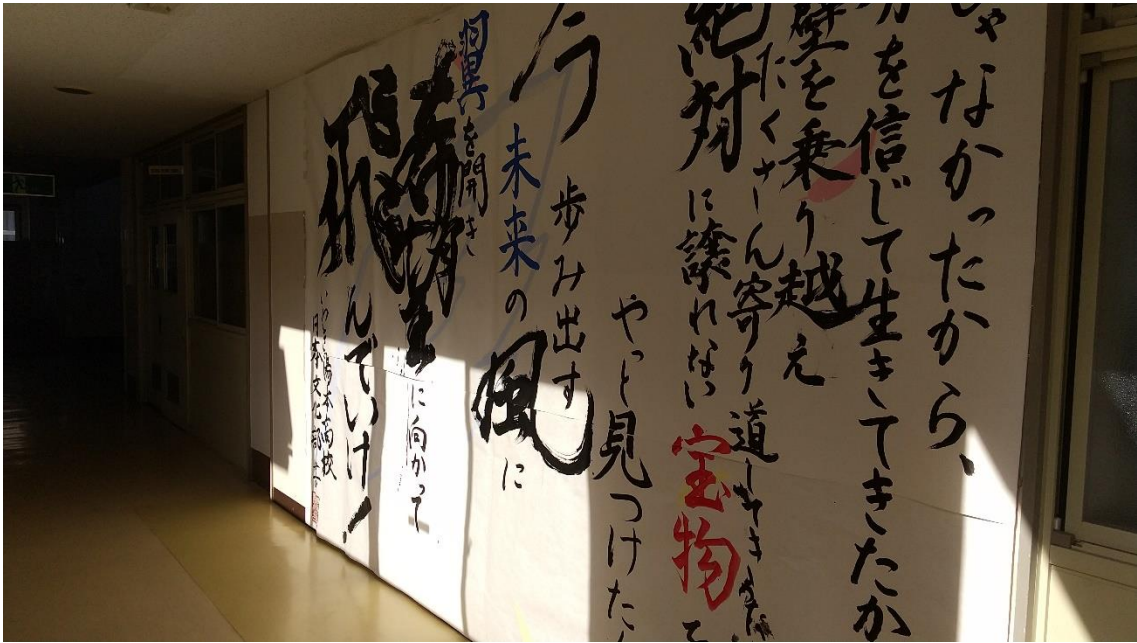 ゃなかったから、
を信じて生きてきたか
壁を乗り越え
たくさん寄り道してきた
絶対に譲れない宝物
やっと見つけた
今
歩み出す
未来の風に
翼を開き
希望に向かって
飛んでいけ！
湯本高校
日本文化部